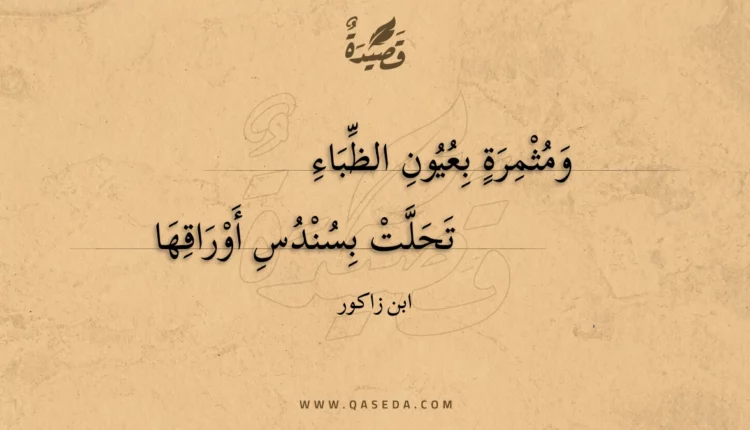 قَصِيدَةٌ
وَمُثْمِرَةٍ بِعُيُونِ الظِّبَاءِ
تَحَلَّتْ بِسُنْدُسِ أَوْرَاقِهَا
ابن زاكور
WWW.QASEDA.COM